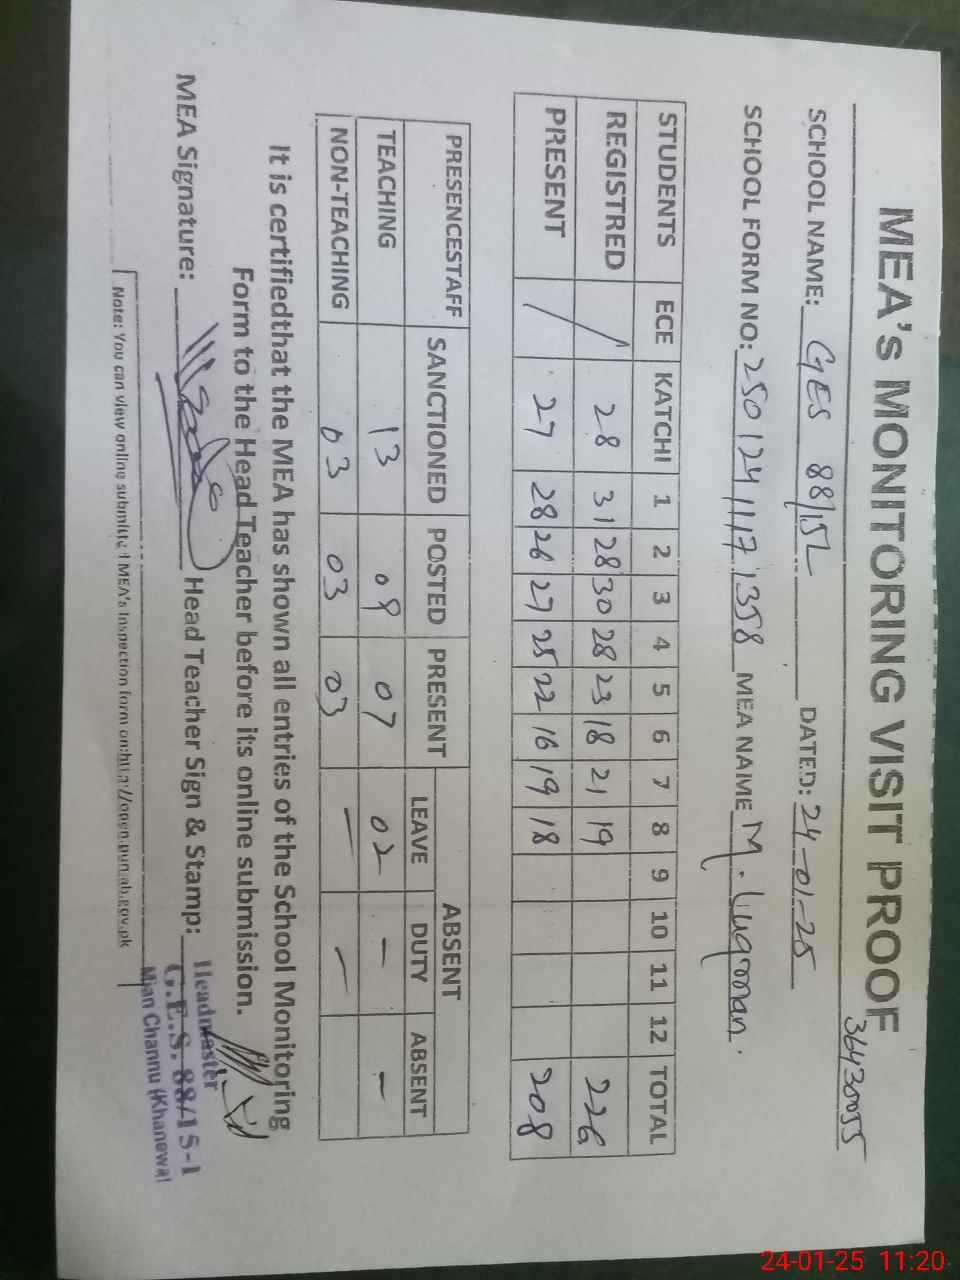 MEA's MONITORING VISIT PROOF
36430055
SCHOOL NAME: GES 88/15L DATED: 24-01-25
SCHOOL FORM NO: 250124111171358 MEA NAME M. Luqman.
STUDENTS ECE KATCHI 1 2 3 4 5 6 7 8 9 10 11 12 TOTAL
REGISTRED / 28 31 28 30 28 23 18 21 19 226
PRESENT / 27 28 26 27 25 22 16 19 18 208
PRESENCESTAFF SANCTIONED POSTED PRESENT ABSENT
LEAVE DUTY ABSENT
TEACHING 13 09 07 02 - -
NON-TEACHING 03 03 03 - -
It is certifiedthat the MEA has shown all entries of the School Monitoring
Form to the Head Teacher before its online submission.
MEA Signature: Head Teacher Sign & Stamp:
Headmaster
G.E.S. 88/15-L
Mian Channu (Khanewal
Note: You can view online submitted MEA's Inspection form on:http://open.punjab.gov.pk
24-01-25 11:20